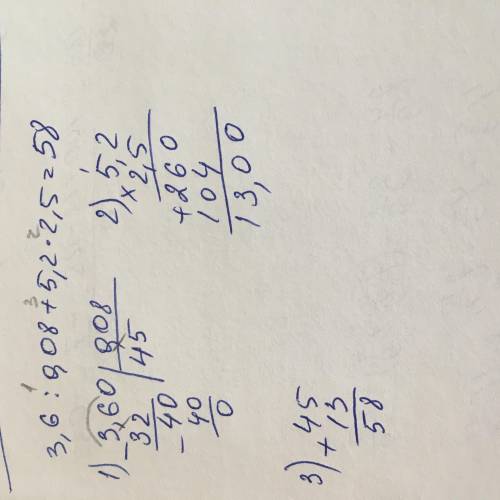 3,6 : 0,08 + 5,2 · 2,5 = 58
1 3 2
1) 3,60 | 0,08
- 32 | 45
- 40
40
0
2) 5,2
× 2,5
+ 260
104
13,00
3) + 45
13
58